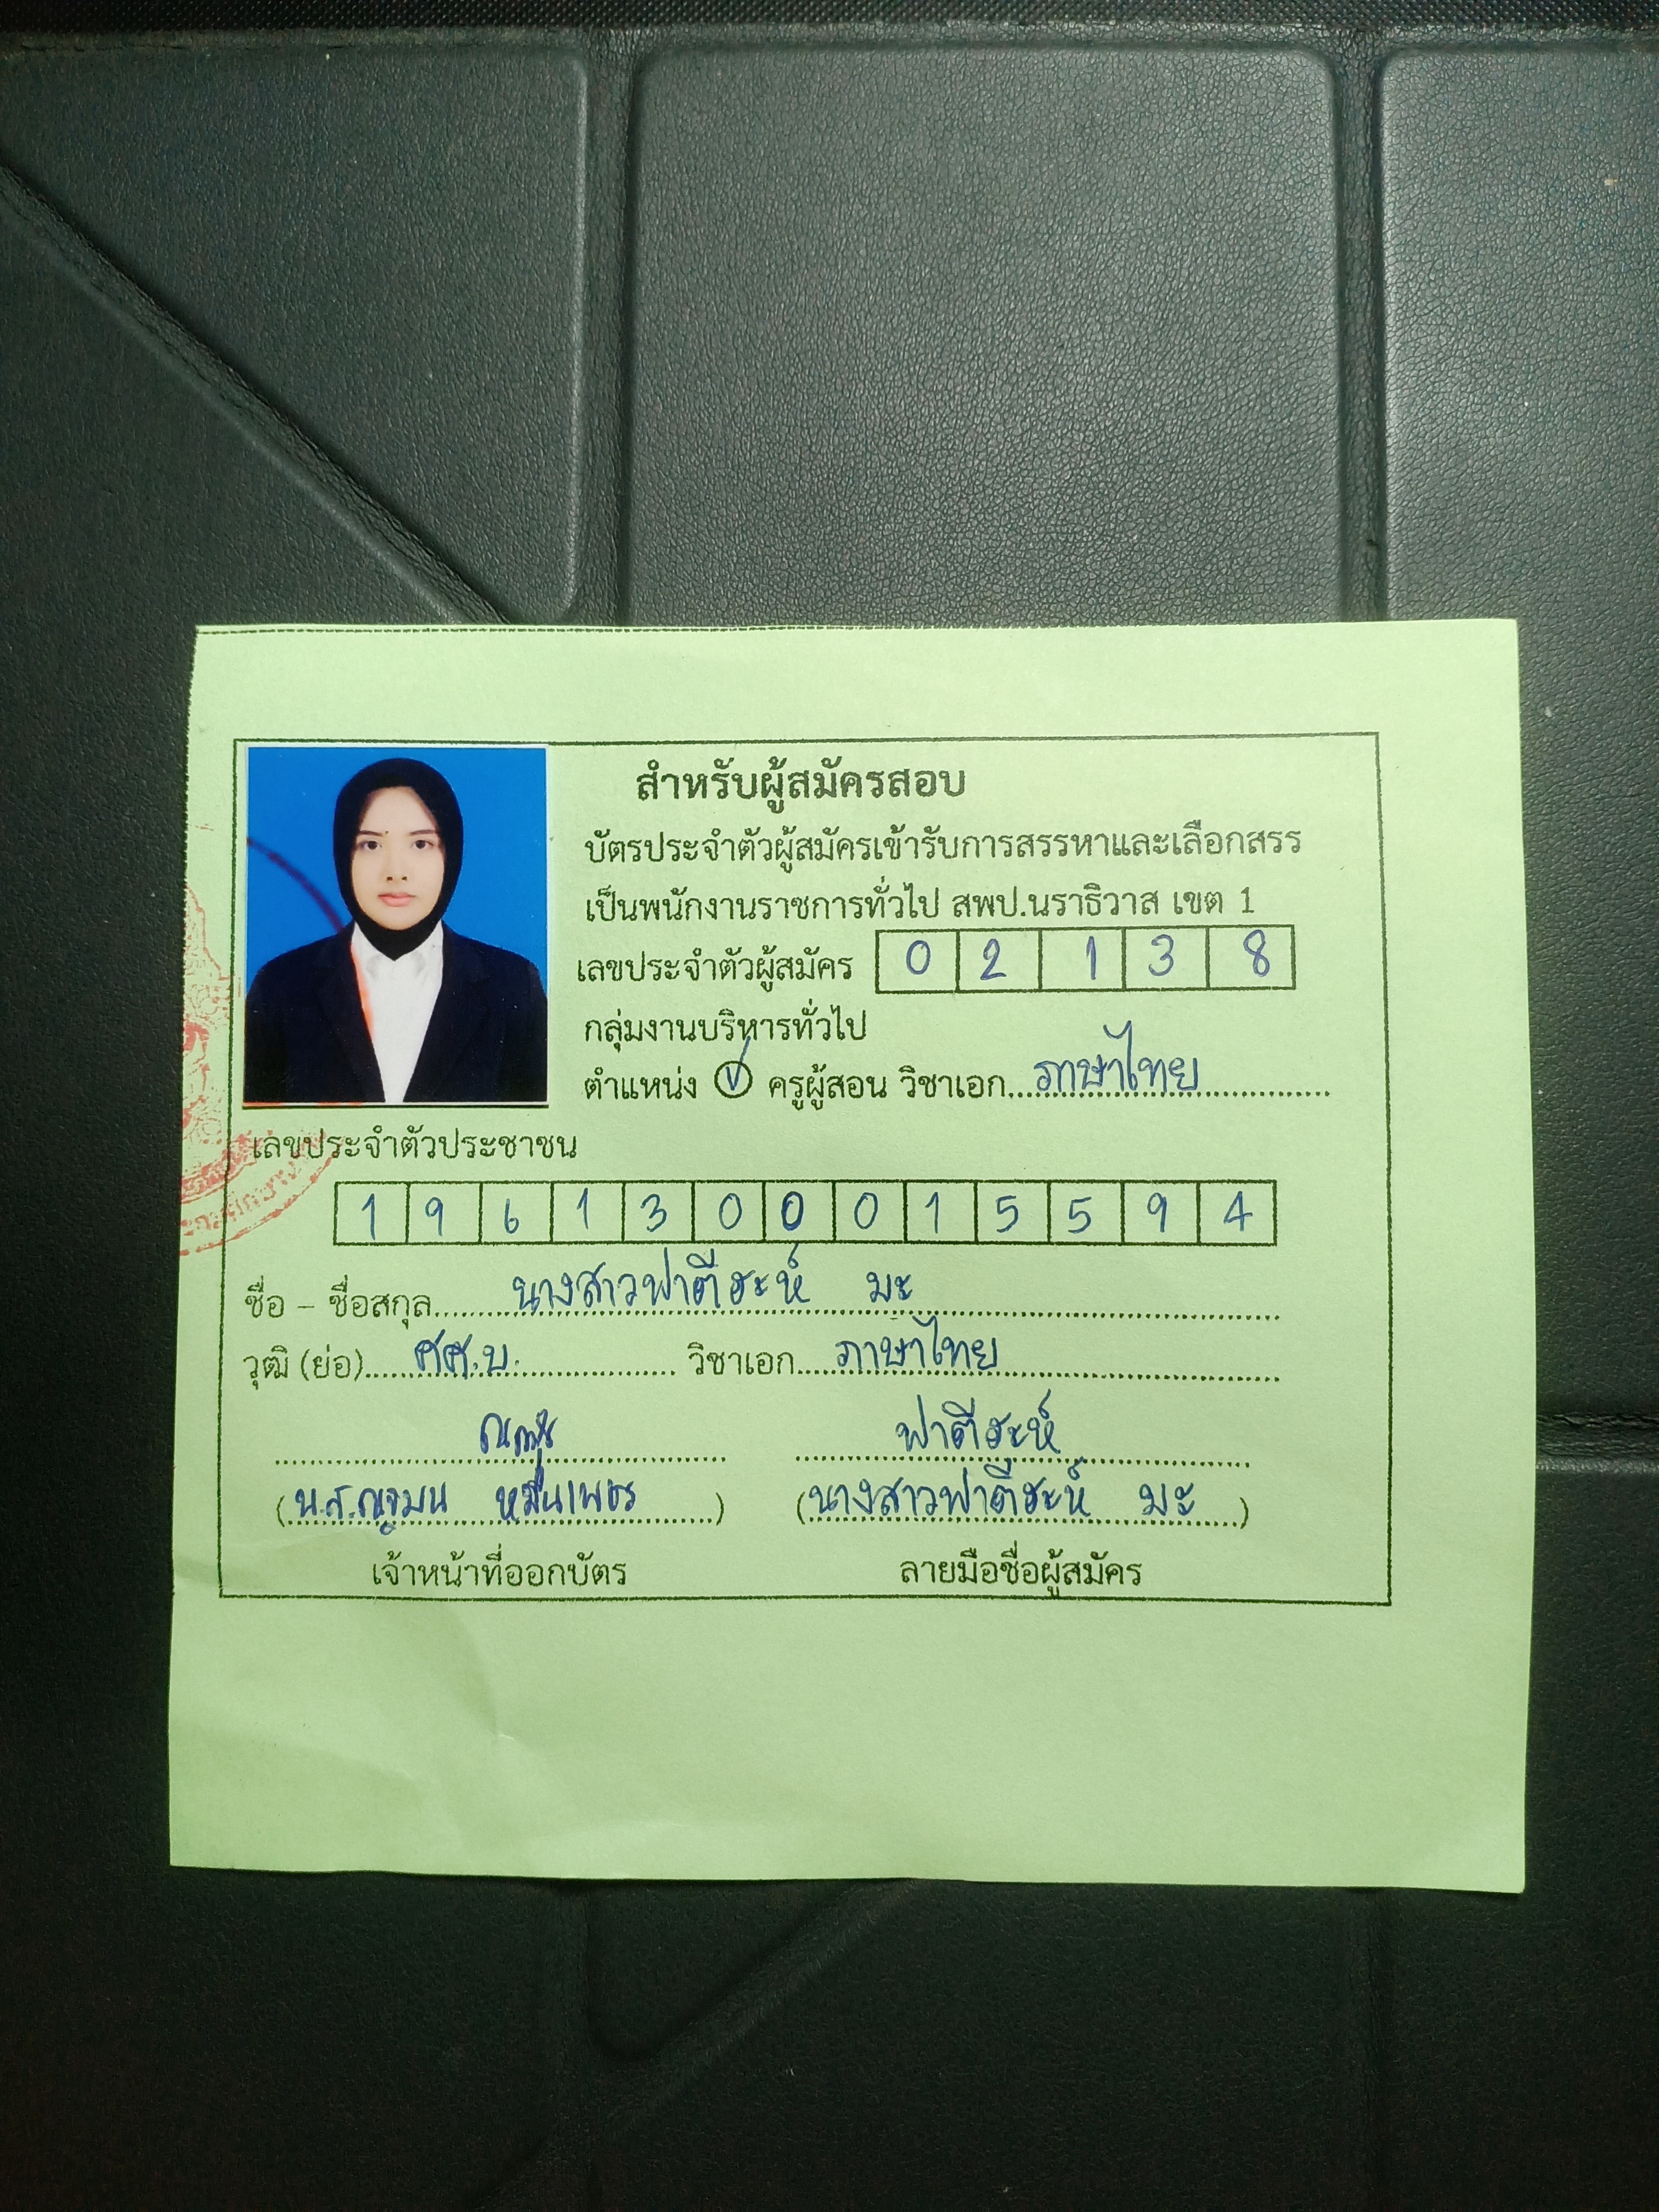 สำหรับผู้สมัครสอบ
บัตรประจำตัวผู้สมัครเข้ารับการสรรหาและเลือกสรร
เป็นพนักงานราชการทั่วไป สพป.นราธิวาส เขต 1
เลขประจำตัวผู้สมัคร 0 2 1 3 8
กลุ่มงานบริหารทั่วไป
ตำแหน่ง ครูผู้สอน วิชาเอก ภาษาไทย
เลขประจำตัวประชาชน
1 9 6 1 3 0 0 0 1 5 5 9 4
ชื่อ - ชื่อสกุล นางสาวฟาตีฮะห์ มะ
วุฒิ (ย่อ) ศศ.บ. วิชาเอก ภาษาไทย
ฟาตีฮะห์
(น.ส. หมื่นเพชร) (นางสาวฟาตีฮะห์ มะ)
เจ้าหน้าที่ออกบัตร ลายมือชื่อผู้สมัคร